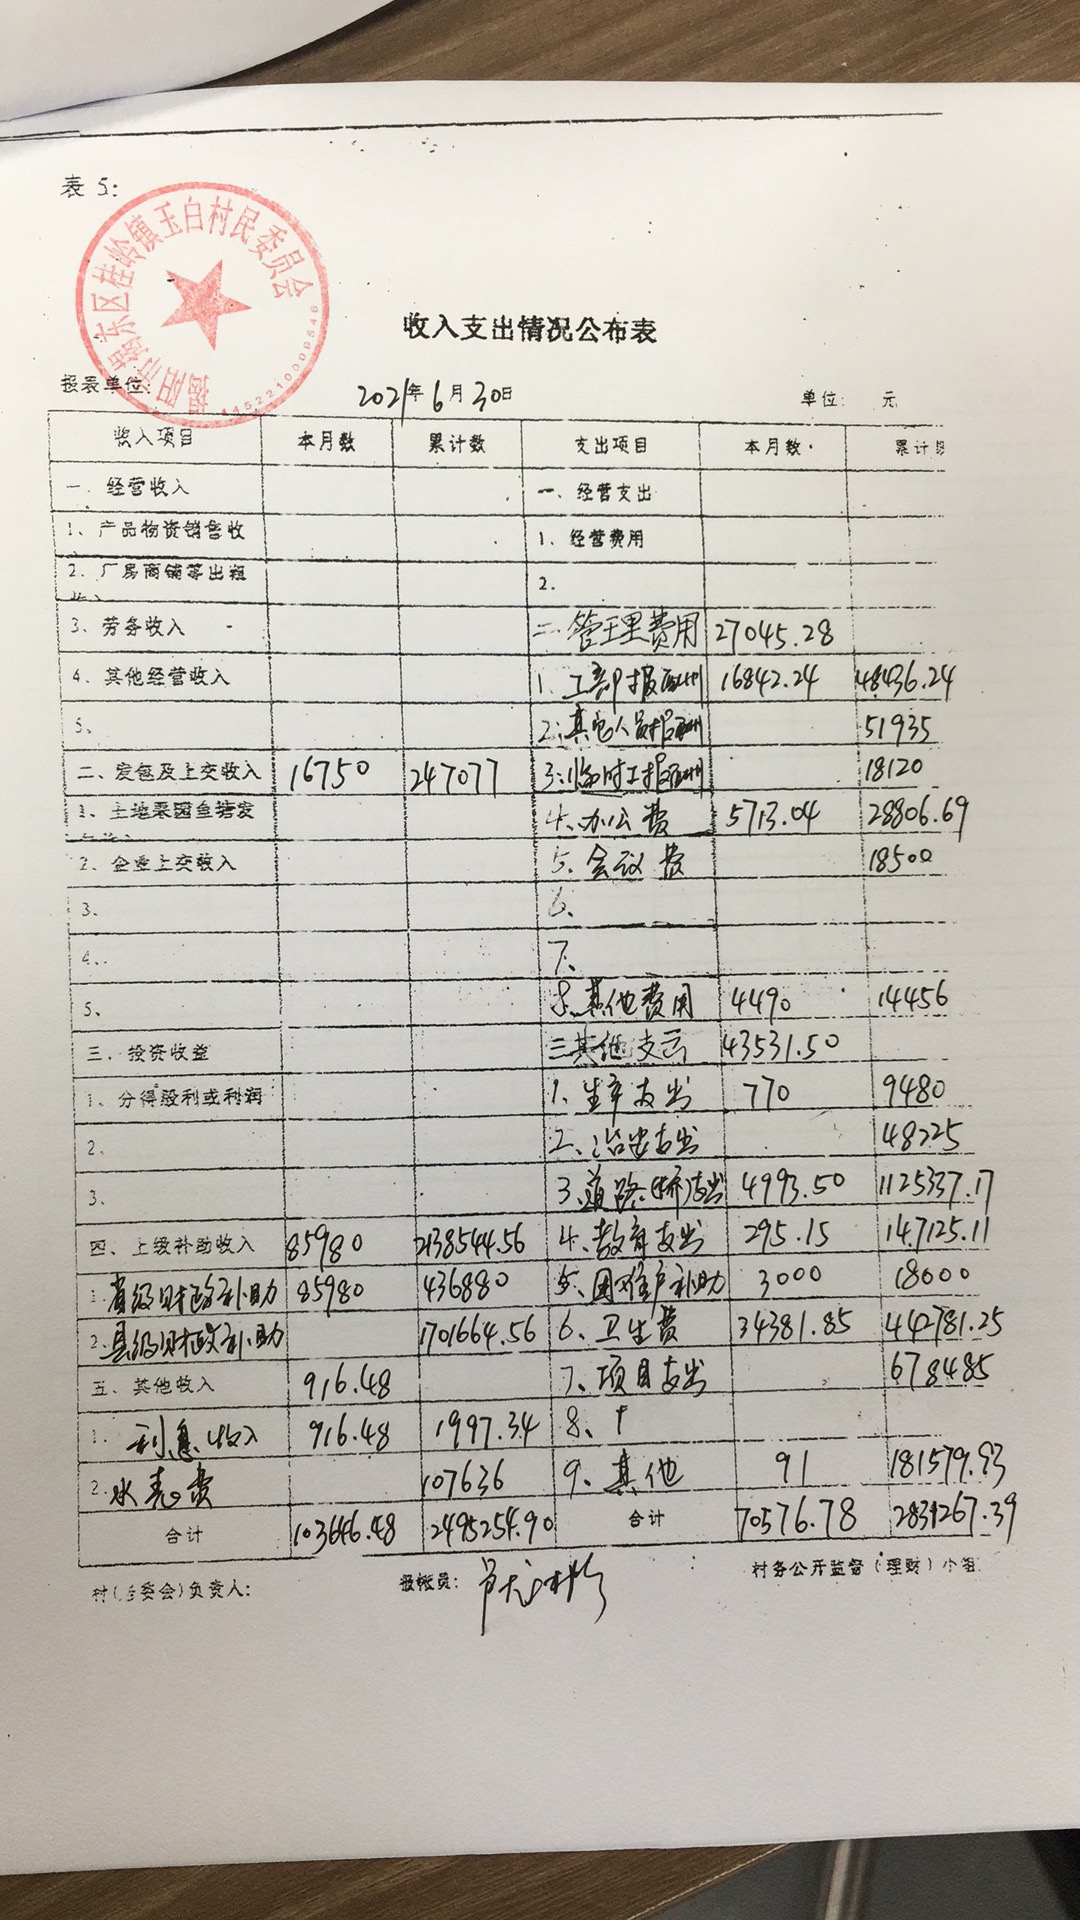 表 5:
揭阳市揭东区桂岭镇玉白村民委员会
4452210009846
收入支出情况公布表
报表单位: 2021年6月30日 单位: 元
收入项目 本月数 累计数 支出项目 本月数 累计
一、经营收入 一、经营支出
1、产品物资销售收 1、经营费用
2、厂房商铺等出租 2.
3、劳务收入 二、管理费用 27045.28
4、其他经营收入 1、干部报酬 16842.24 48436.24
5、 2、其它人员报酬 51935
二、发包及上交收入 16750 247077 3、临时工报酬 18120
1、土地果园鱼塘发 4、办公费 5713.04 28806.69
2、企业上交收入 5、会议费 18500
3、 6、
4、 7、
5、 8、其他费用 4490 14456
三、投资收益 三其他支出 43531.50
1、分得股利或利润 1、生产支出 770 9480
2、 2、治安支出 48225
3、 3、道路桥支出 4993.50 1125337.17
四、上级补助收入 85980 2138544.56 4、教育支出 295.15 147125.11
1.省级财政补助 85980 436880 5、困难户补助 3000 18000
2.县级财政补助 1701664.56 6、卫生费 34381.85 442781.25
五、其他收入 916.48 7、项目支出 678485
1. 利息收入 916.48 1997.34 8、
2.水表费 107636 9、其他 91 181579.93
合计 103646.48 2495254.90 合计 70576.78 2831267.39
村(居委会)负责人: 报帐员: 村务公开监督(理财)小组